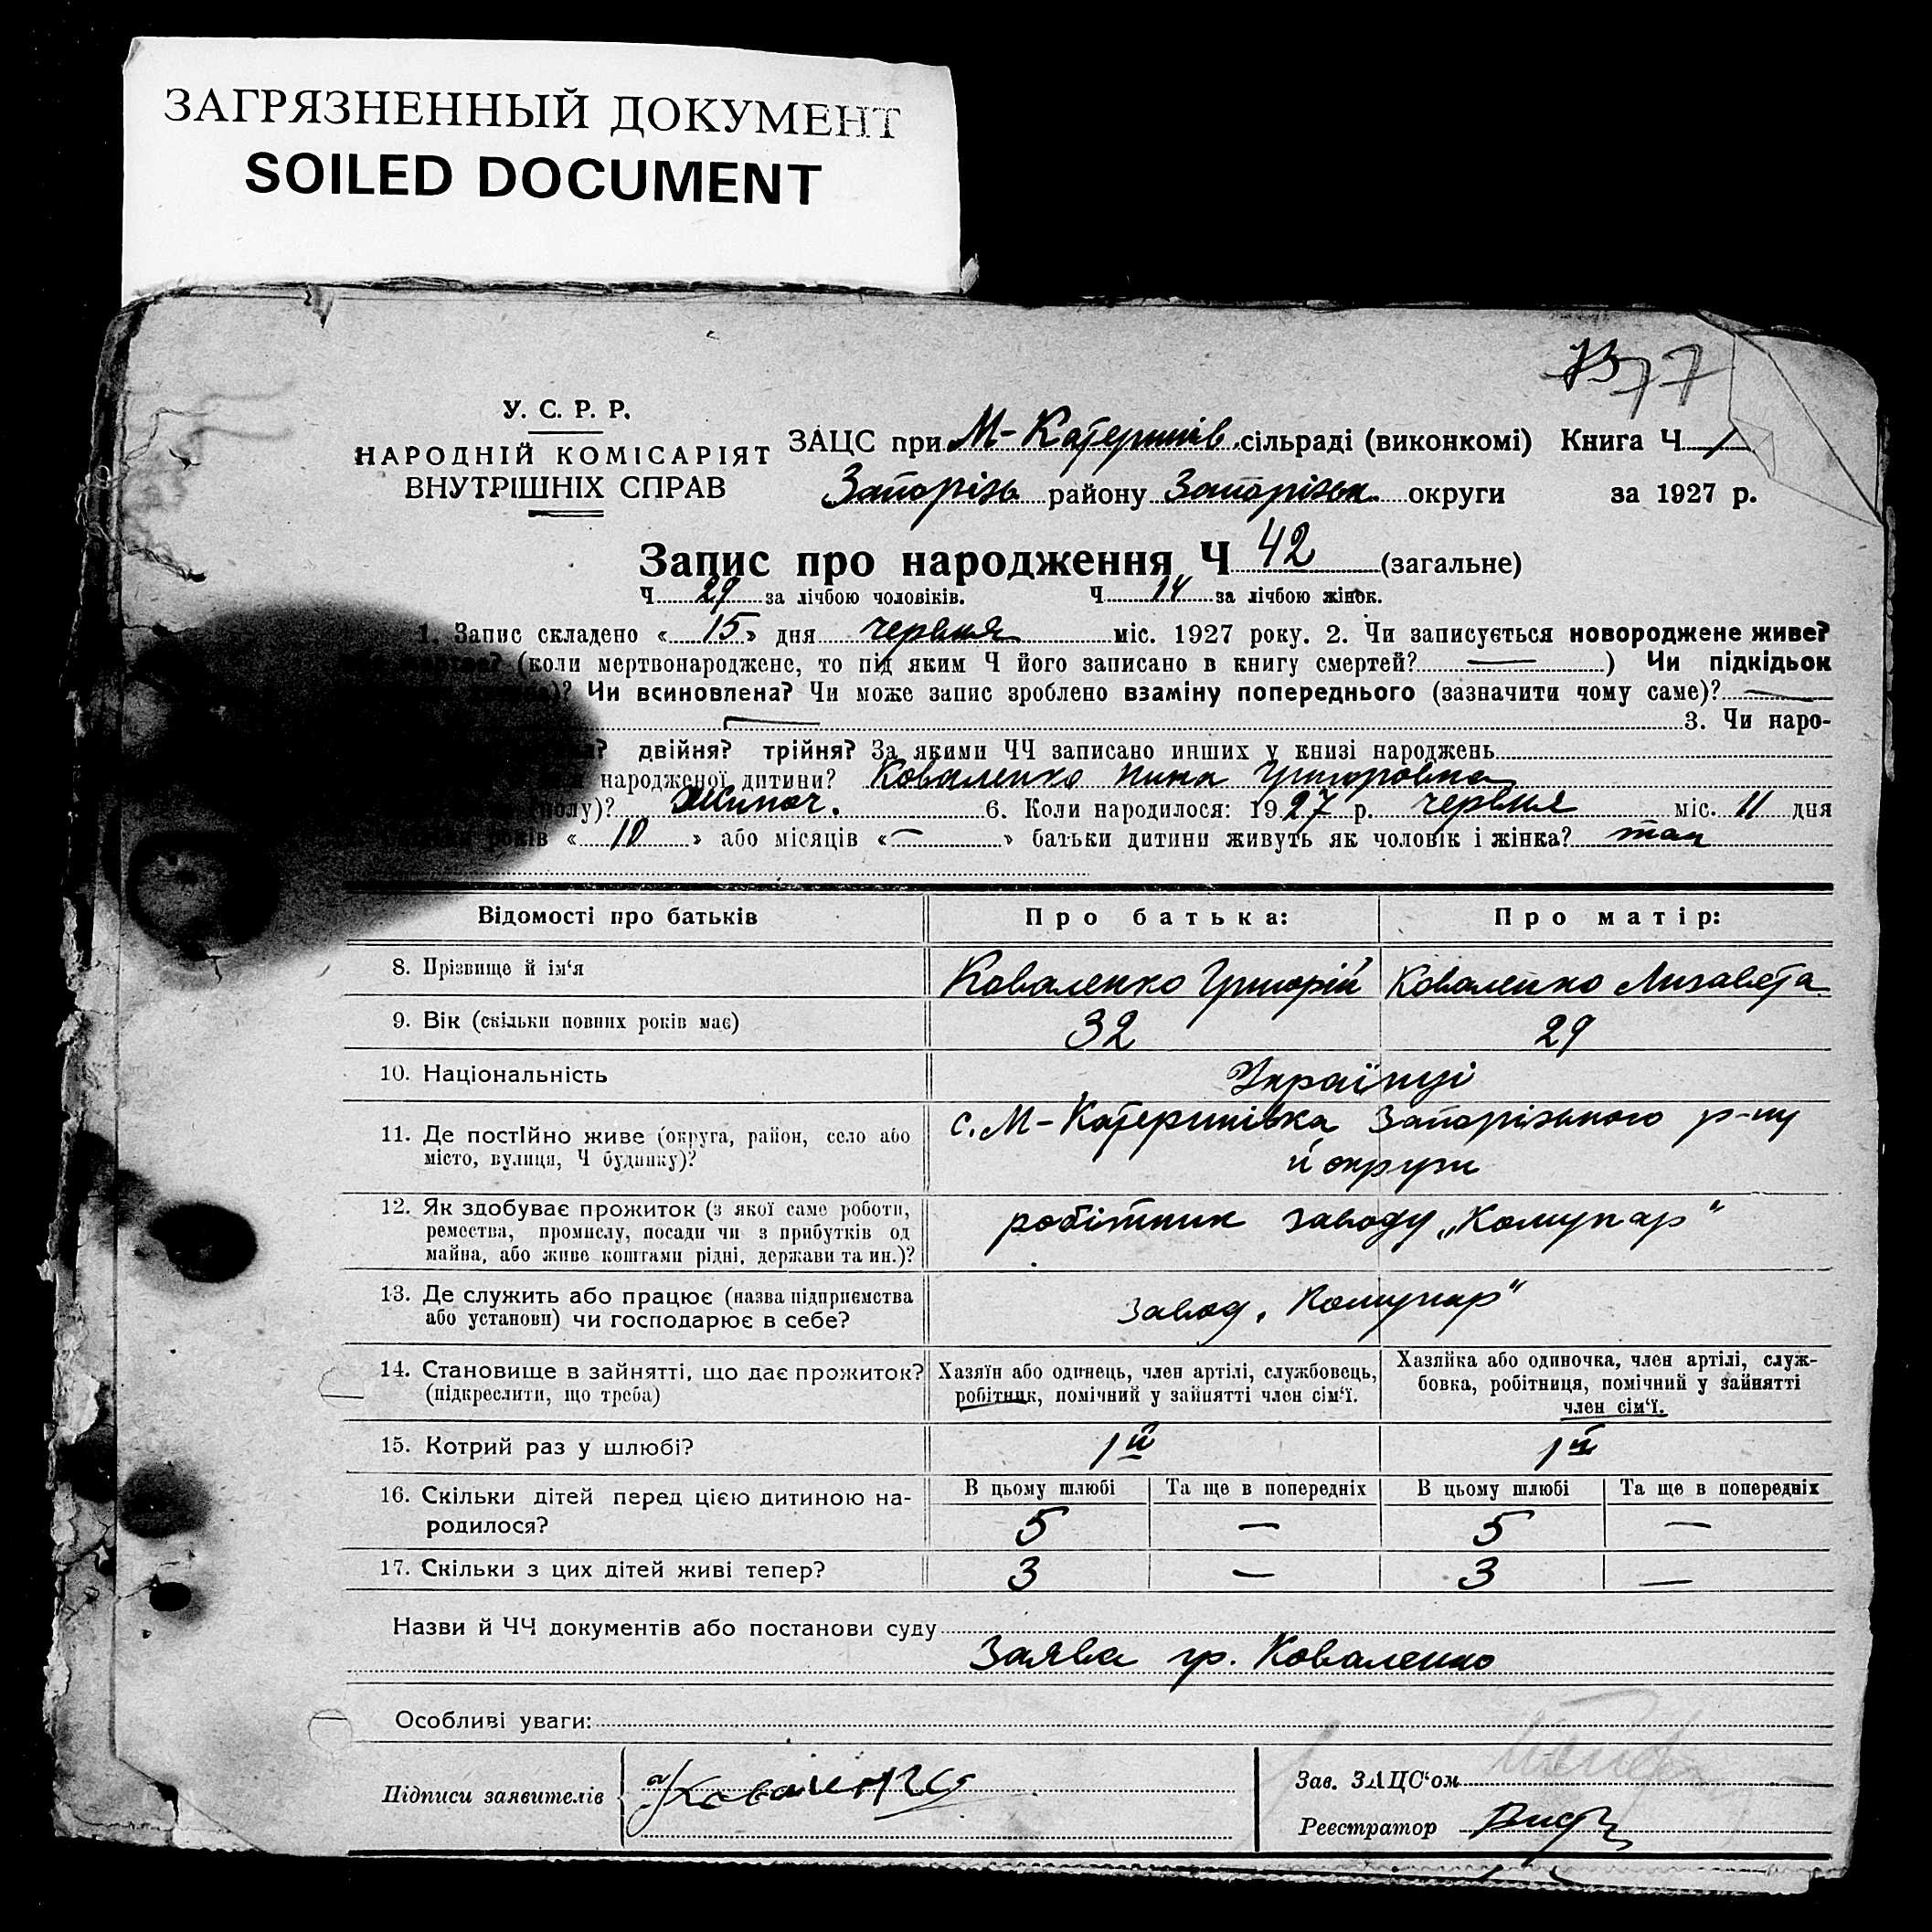 ЗАГРЯЗНЕННЫЙ ДОКУМЕНТ
SOILED DOCUMENT
77
У. С. Р. Р.
НАРОДНІЙ КОМІСАРІЯТ
ВНУТРІШНІХ СПРАВ
ЗАЦС при М-Катеринів. сільраді (виконкомі) Книга Ч 1
Запорізь району Запорізьк. округи за 1927 р.
Запис про народження Ч 42 (загальне)
Ч 29 за лічбою чоловіків. Ч 14 за лічбою жінок.
1. Запис складено «15» дня червня міс. 1927 року. 2. Чи записується новороджене живе?
(коли мертвонароджене, то під яким Ч його записано в книгу смертей? —) Чи підкідьок
)? Чи всиновлена? Чи може запис зроблено взаміну попереднього (зазначити чому саме)? —
3. Чи наро-
двійня? трійня? За якими ЧЧ записано инших у книзі народжень
народженої дитини? Коваленко Нина Григоровна
(полу)? Жиноч. 6. Коли народилося: 1927 р. червня міс. 11 дня
років «10» або місяців «—» батьки дитини живуть як чоловік і жінка? так
Відомості про батьків Про батька: Про матір:
8. Прізвище й ім‘я Коваленко Григорій Коваленко Лизавета
9. Вік (скільки повних років має) 32 29
10. Національність Українці
11. Де постійно живе (округа, район, село або місто, вулиця, Ч будинку)? с. М-Катеринівка Запорізького р-ну
й округи
12. Як здобуває прожиток (з якої саме роботи,
ремества, промислу, посади чи з прибутків од
майна, або живе коштами рідні, держави та ин.)? робітник заводу „Комунар“
13. Де служить або працює (назва підприємства
або установи) чи господарює в себе? Завод „Комунар“
14. Становище в зайнятті, що дає прожиток?
(підкреслити, що треба)
Хазяїн або одинець, член артілі, службовець,
робітник, помічний у зайнятті член сім‘ї.
Хазяйка або одиночка, член артілі, служ-
бовка, робітниця, помічний у зайнятті
член сім‘ї.
15. Котрий раз у шлюбі? 1й 1й
16. Скільки дітей перед цією дитиною на-
родилося?
В цьому шлюбі Та ще в попередніх В цьому шлюбі Та ще в попередніх
5 — 5 —
17. Скільки з цих дітей живі тепер? 3 — 3 —
Назви й ЧЧ документів або постанови суду
Заява гр. Коваленко
Особливі уваги:
Підписи заявителів Коваленко
Зав. ЗАЦС‘ом
Реєстратор